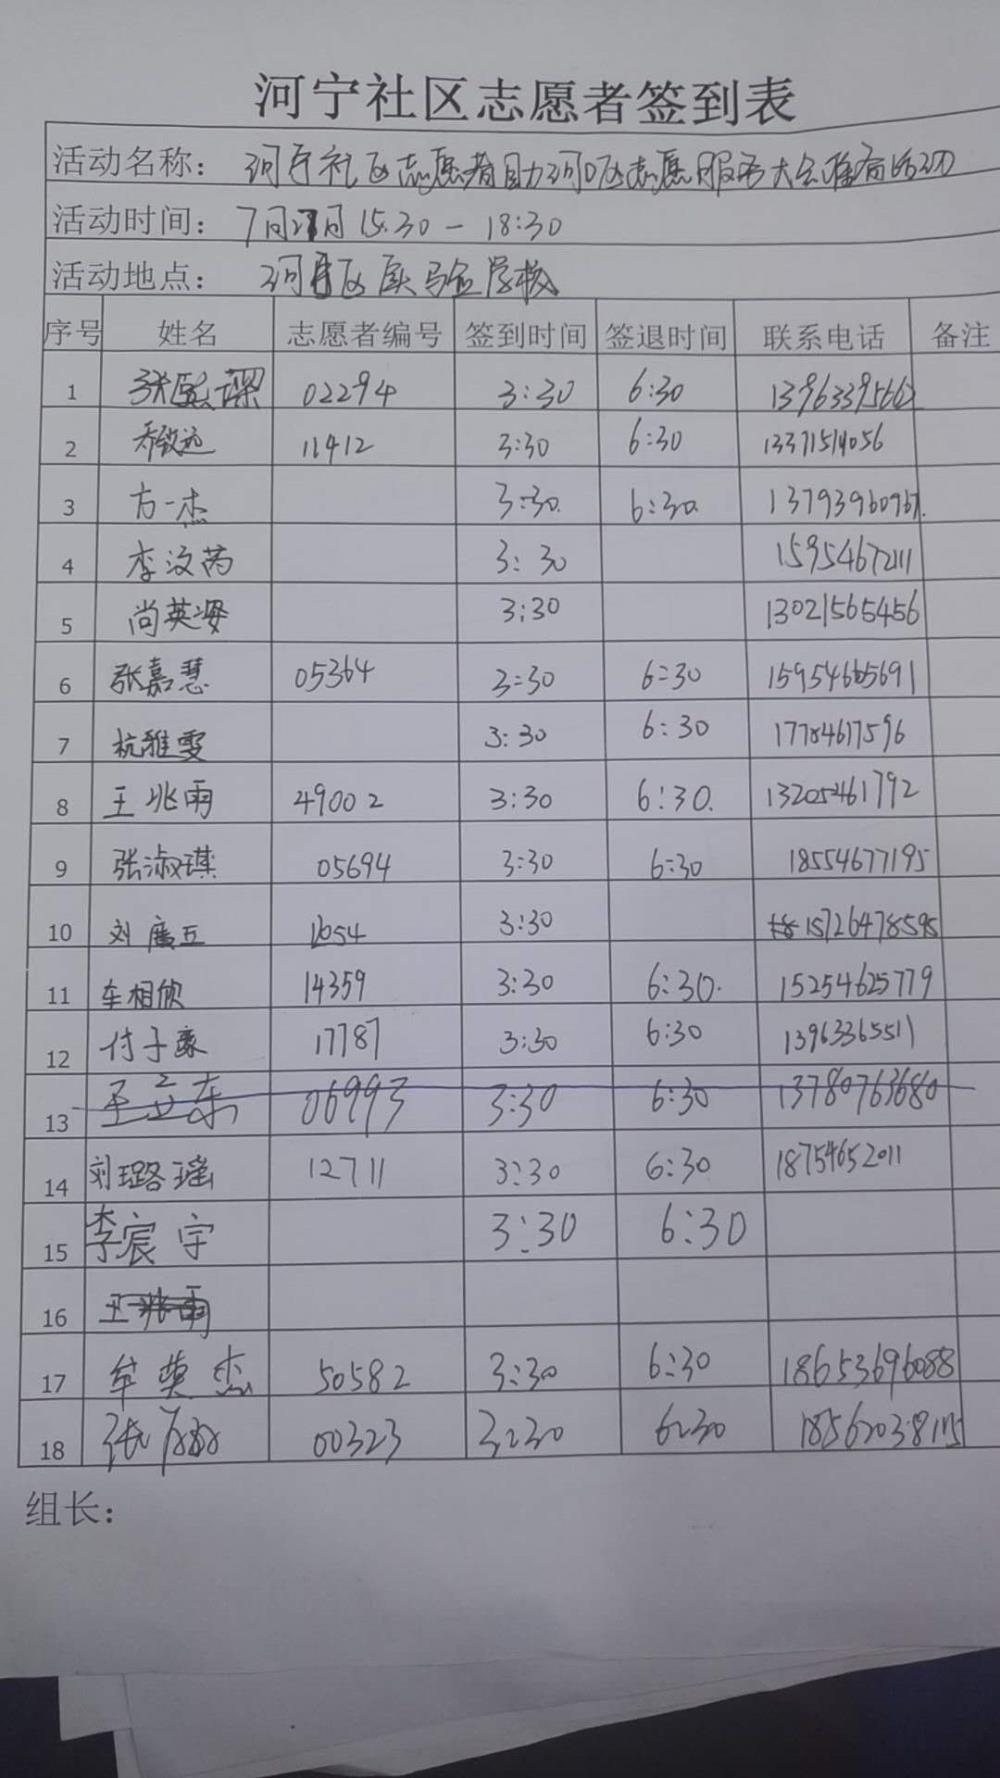 河宁社区志愿者签到表
活动名称： 河宁社区志愿者助河口区志愿服务大会准备活动
活动时间： 7月21日 15:30 - 18:30
活动地点： 河口区实验学校
序号 姓名 志愿者编号 签到时间 签退时间 联系电话 备注
1 张熙课 02294 3:30 6:30 13963395662
2 乔致远 11412 3:30 6:30 13371514056
3 方一杰 3:30 6:30 13793960967
4 李汶芮 3:30 15954672111
5 尚英姿 3:30 13021565456
6 张嘉慧 05364 3:30 6:30 15954665691
7 杭雅雯 3:30 6:30 17784617596
8 王兆雨 49002 3:30 6:30 13205461792
9 张淑琪 05694 3:30 6:30 18554677195
10 刘广五 3:30 15726478595
11 车相欣 14359 3:30 6:30 15254625779
12 付子豪 17787 3:30 6:30 13963365511
13 王立东 06993 3:30 6:30 13780763680
14 刘璐瑶 12711 3:30 6:30 18754652011
15 李宸宇 3:30 6:30
16 王兆雨
17 牟英杰 50582 3:30 6:30 18653696088
18 张 00323 3:30 6:30
组长：